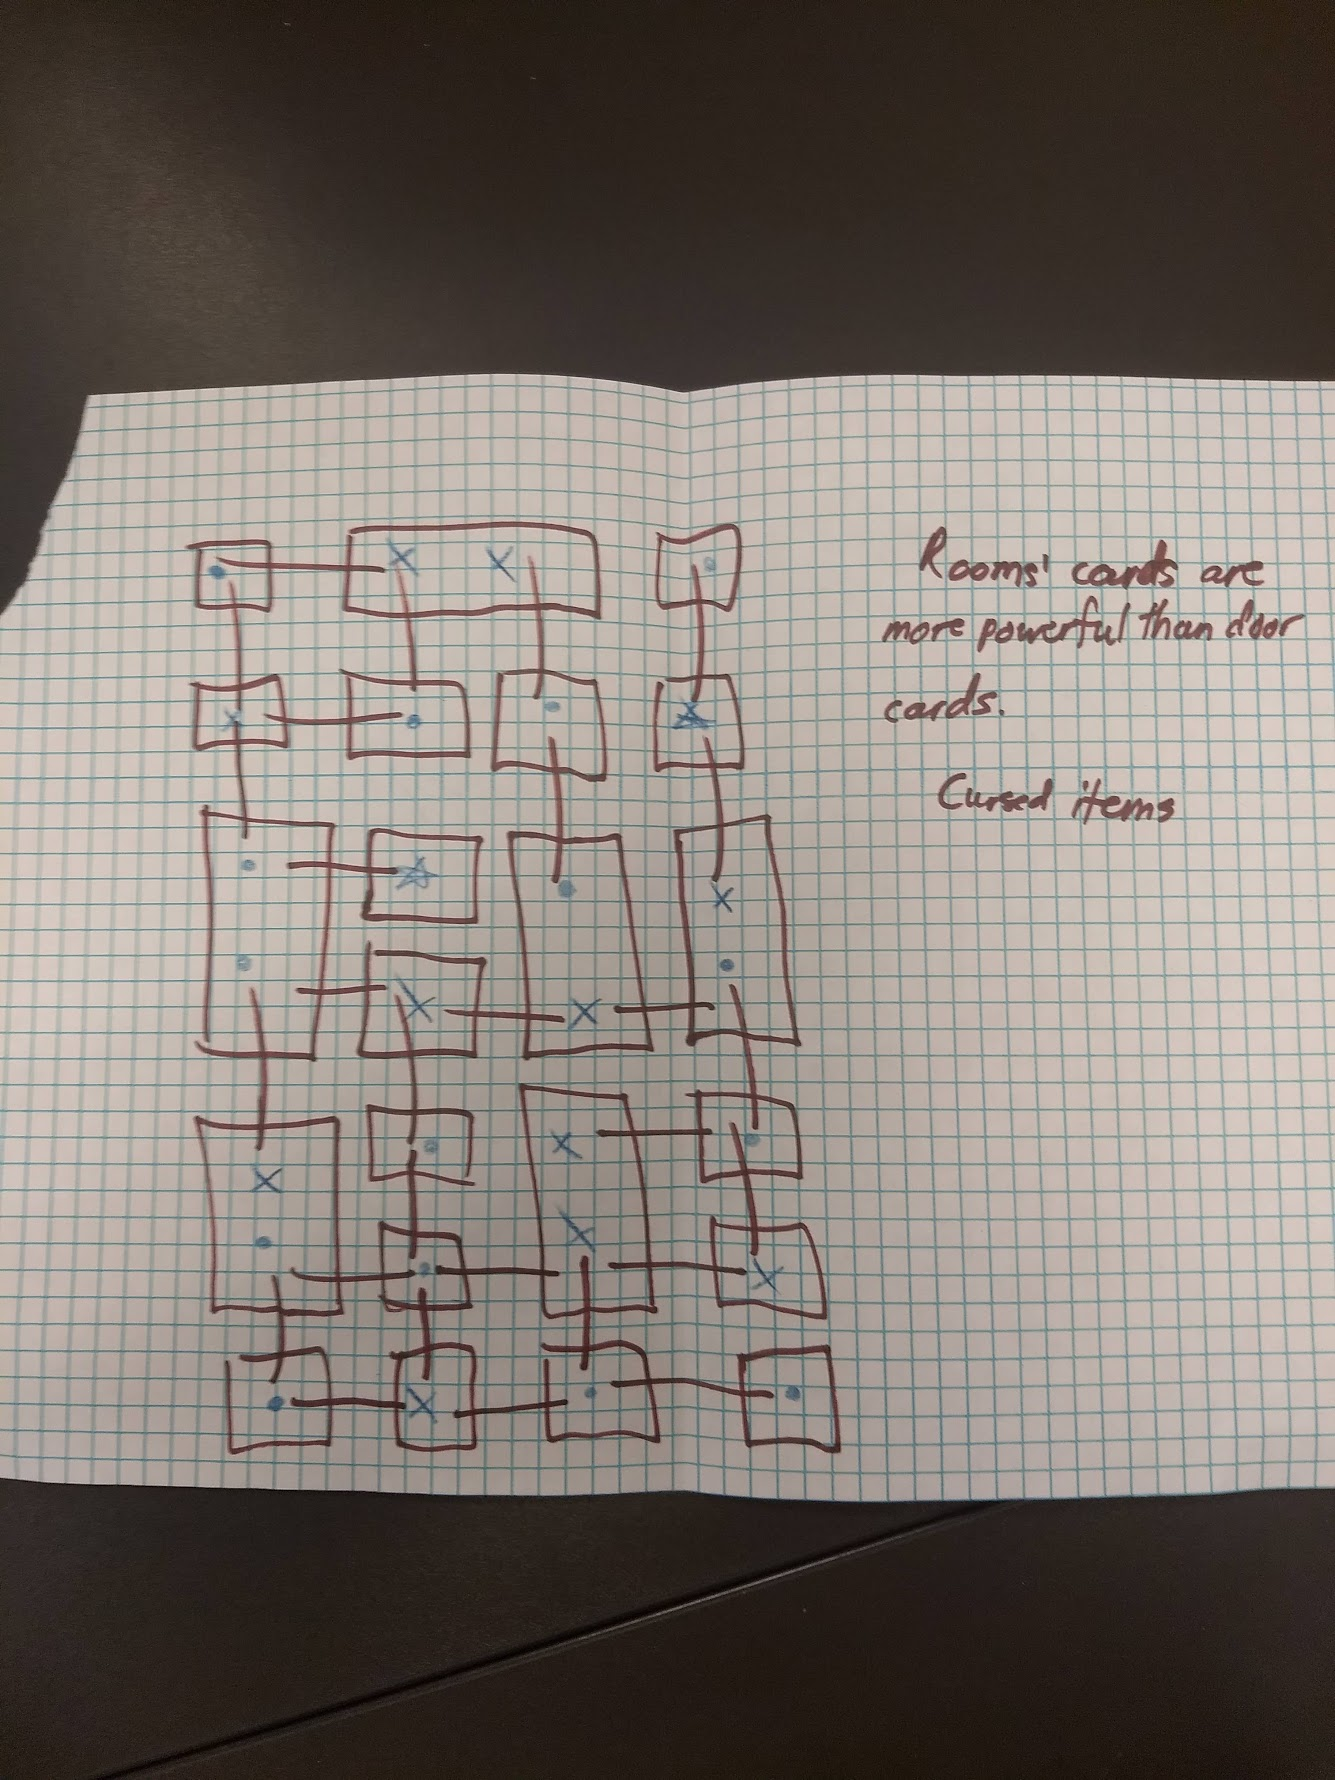 Rooms' cards are
more powerful than door
cards.
Cursed items